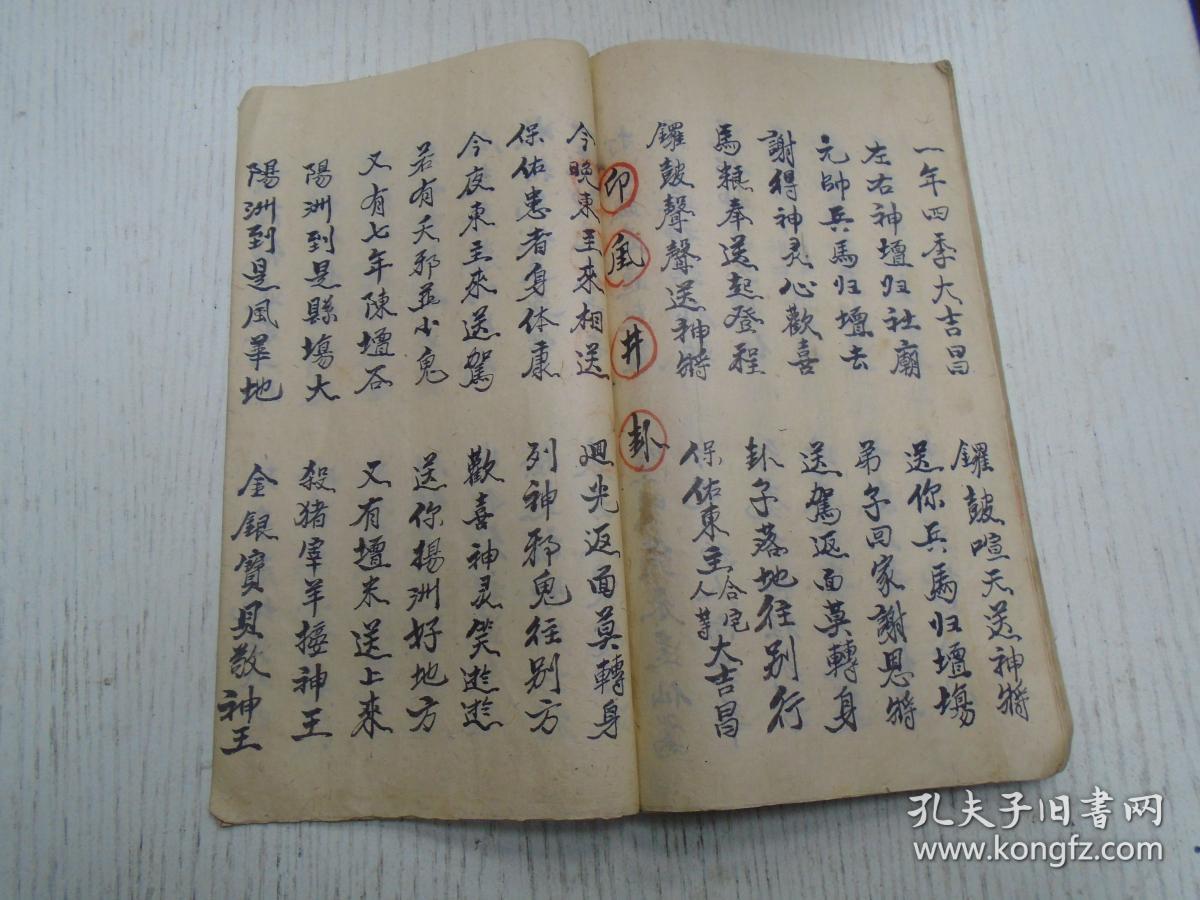 一年四季大吉昌
鑼鼓喧天送神將
左右神壇归社廟
送你兵馬归壇塲
元帥兵馬归壇去
弟子回家謝恩將
謝得神灵心歡喜
送駕返面莫轉身
馬粮奉送起登程
卦子落地往别行
鑼鼓聲聲送神將
保佑東主合宅人等大吉昌
印風井卦
今晚東主來相送
廻光返面莫轉身
保佑患者身体康
列神邪鬼往别方
今夜東主來送駕
歡喜神灵笑遊遊
若有夭邪並小鬼
送你揚洲好地方
又有七年陳壇谷
又有壇米送上來
陽洲到是縣塲大
殺猪宰羊接神王
陽洲到是風華地
金銀寶貝敬神王
孔夫子旧书网
www.kongfz.com